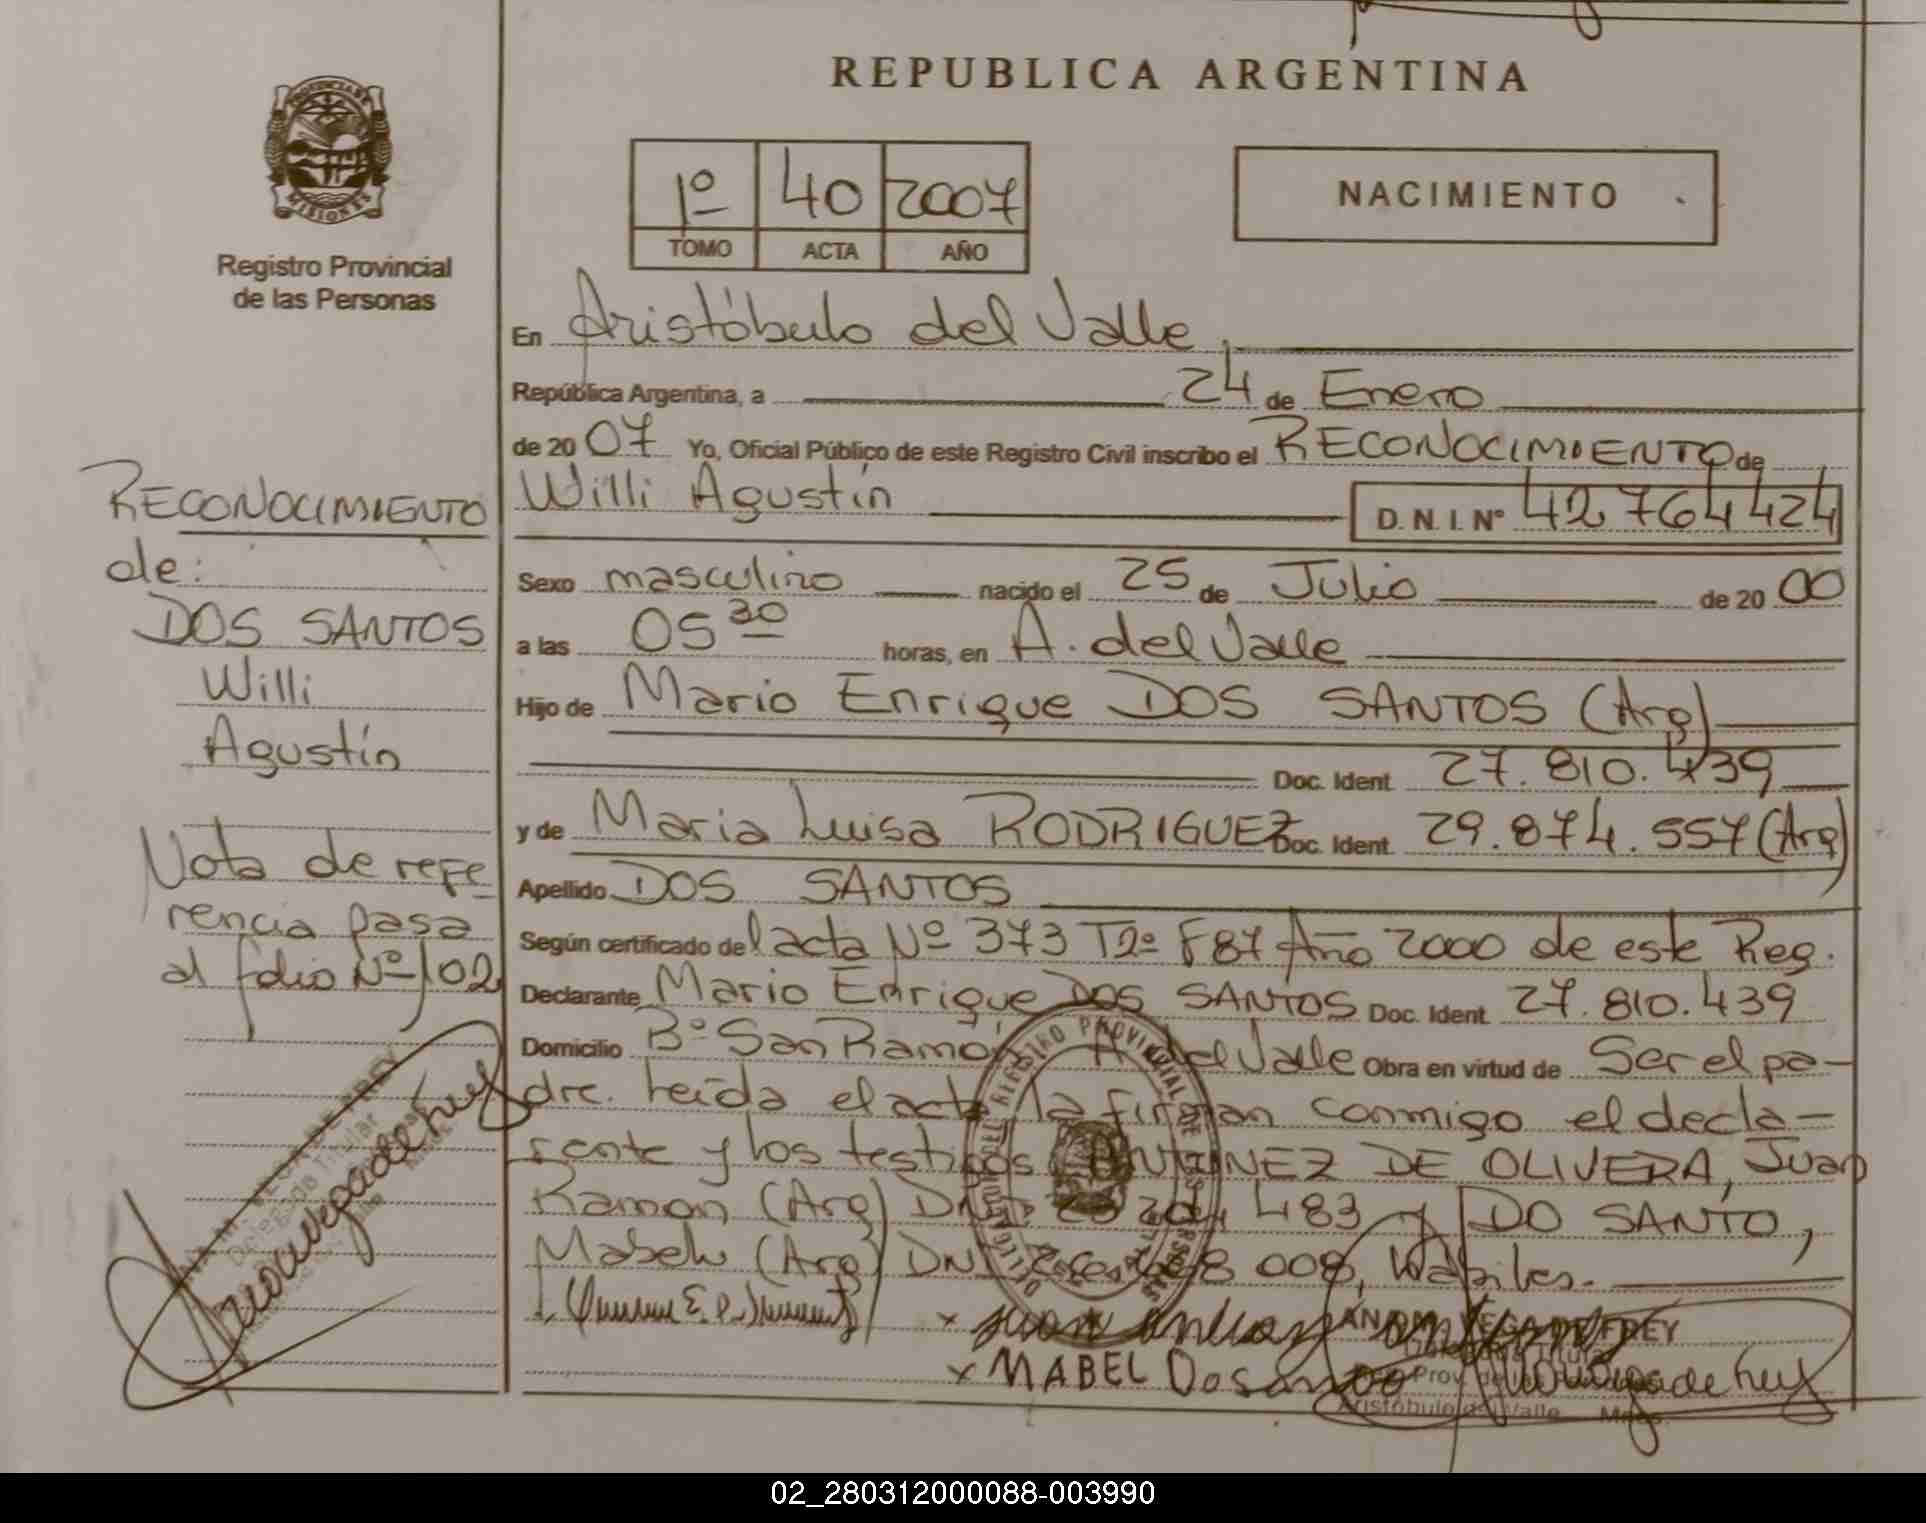 REPUBLICA ARGENTINA
PROVINCIA DE
MISIONES
Registro Provincial
de las Personas
1º 40 2007
TOMO ACTA AÑO
NACIMIENTO
En Aristóbulo del Valle,
República Argentina, a 24 de Enero
de 20 07 Yo, Oficial Público de este Registro Civil inscribo el RECONOCIMIENTO de
Willi Agustín D. N. I. Nº 42 764 424
Sexo masculino nacido el 25 de Julio de 20 00
a las 05 30 horas, en A. del Valle
Hijo de Mario Enrique DOS SANTOS (Arg)
Doc. Ident. 27.810.439
y de Maria Luisa RODRIGUEZ Doc. Ident. 29.874.557 (Arg)
Apellido DOS SANTOS
Según certificado del acta Nº 373 Tº 2º F 87 Año 2000 de este Reg.
Declarante Mario Enrique DOS SANTOS Doc. Ident. 27.810.439
Domicilio Bº San Ramón A. del Valle Obra en virtud de Ser el pa-
dre. Leída el acta la firman conmigo el decla-
rante y los testigos ANTUNEZ DE OLIVERA, Juan
Ramon (Arg) DNI 483 y DO SANTO,
Mabel (Arg) DNI 008, hábiles.
MABEL Dosanto
ANA M. VEGA DE FREY
Aristóbulo del Valle Mnes.
RECONOCIMIENTO
de:
DOS SANTOS
Willi
Agustín
Nota de refe-
rencia pasa
al folio Nº 102
02_280312000088-003990